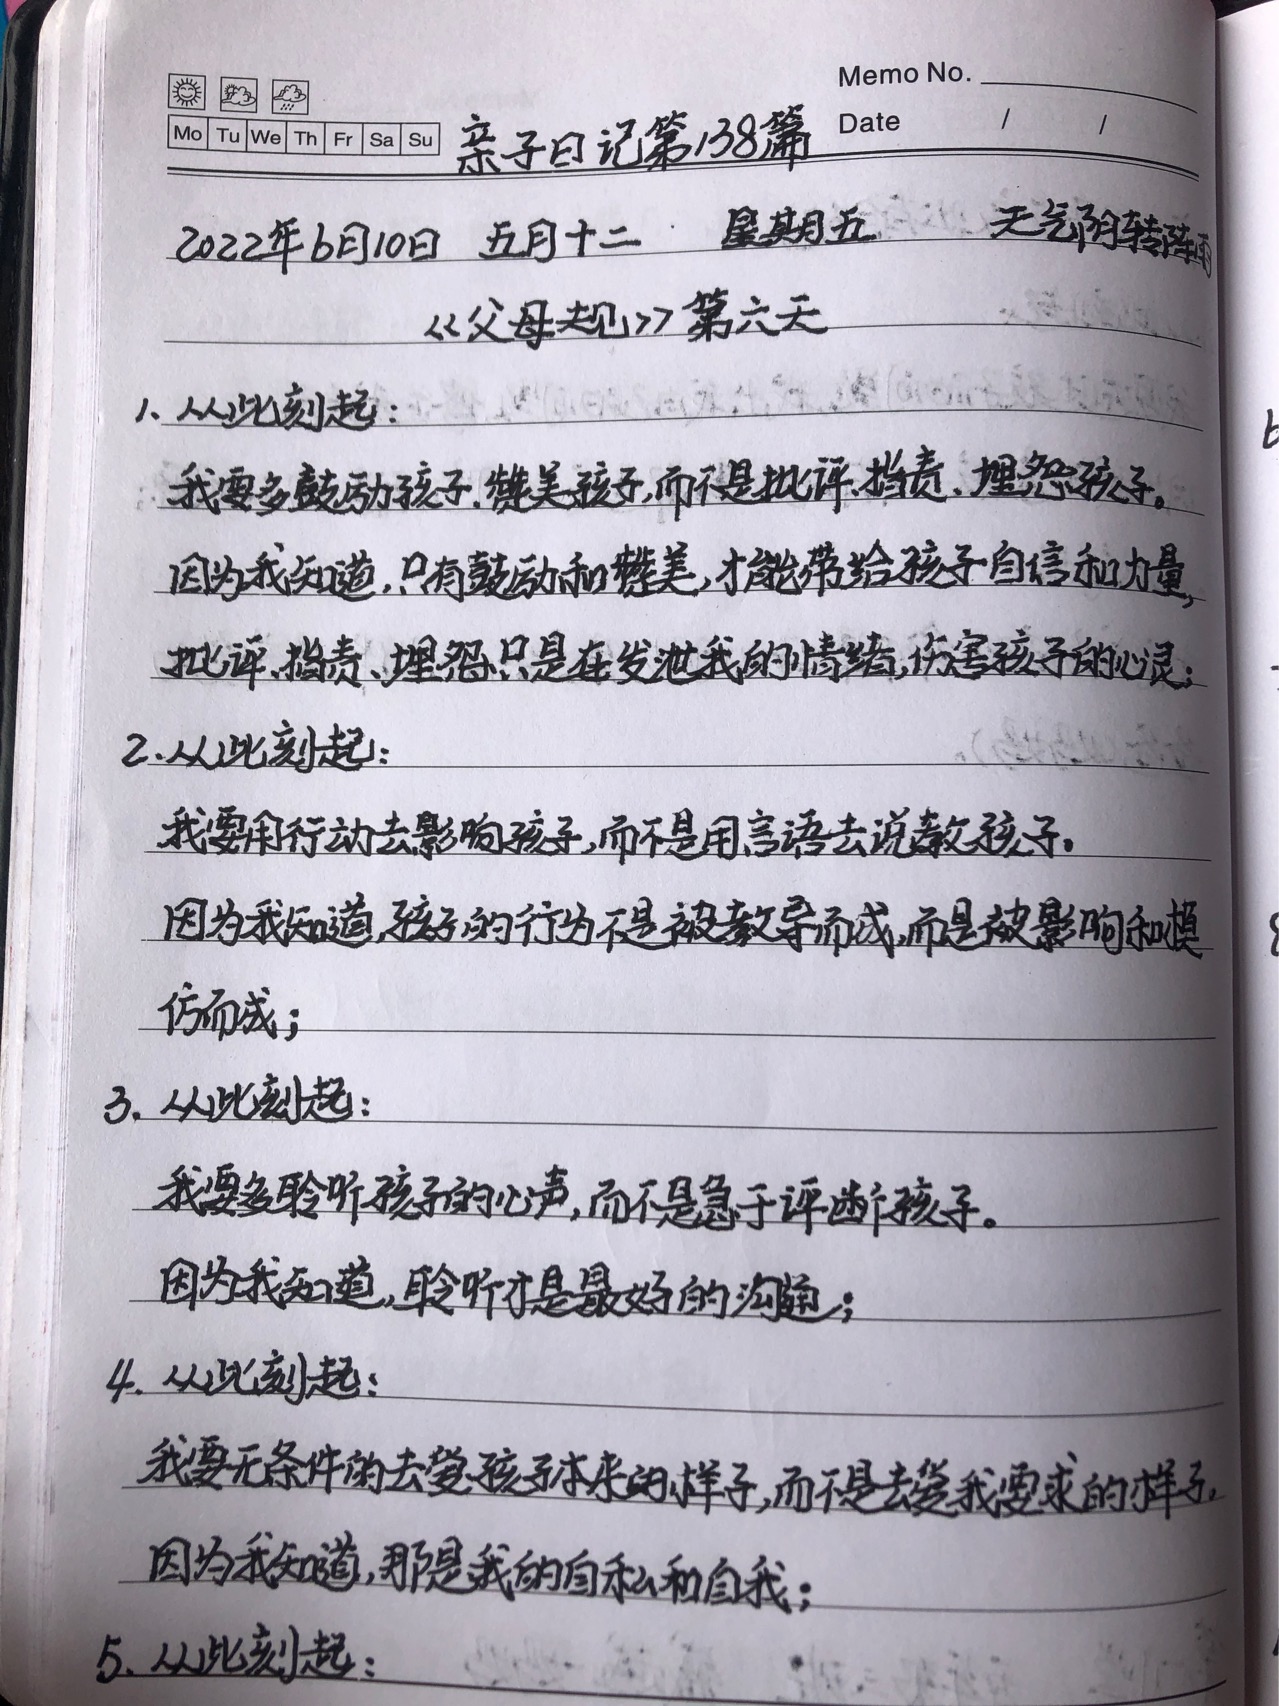 Memo No.
Mo Tu We Th Fr Sa Su
Date / /
亲子日记第138篇
2022年6月10日 五月十二 星期五 天气阴转阵雨
《父母规》第六天
1. 从此刻起:
我要多鼓励孩子、赞美孩子,而不是批评、指责、埋怨孩子。
因为我知道,只有鼓励和赞美,才能带给孩子自信和力量,
批评、指责、埋怨只是在发泄我的情绪,伤害孩子的心灵;
2. 从此刻起:
我要用行动去影响孩子,而不是用言语去说教孩子。
因为我知道,孩子的行为不是被教导而成,而是被影响和模
仿而成;
3. 从此刻起:
我要多聆听孩子的心声,而不是急于评断孩子。
因为我知道,聆听才是最好的沟通;
4. 从此刻起:
我要无条件的去爱孩子本来的样子,而不是去爱我要求的样子,
因为我知道,那是我的自私和自我;
5. 从此刻起: